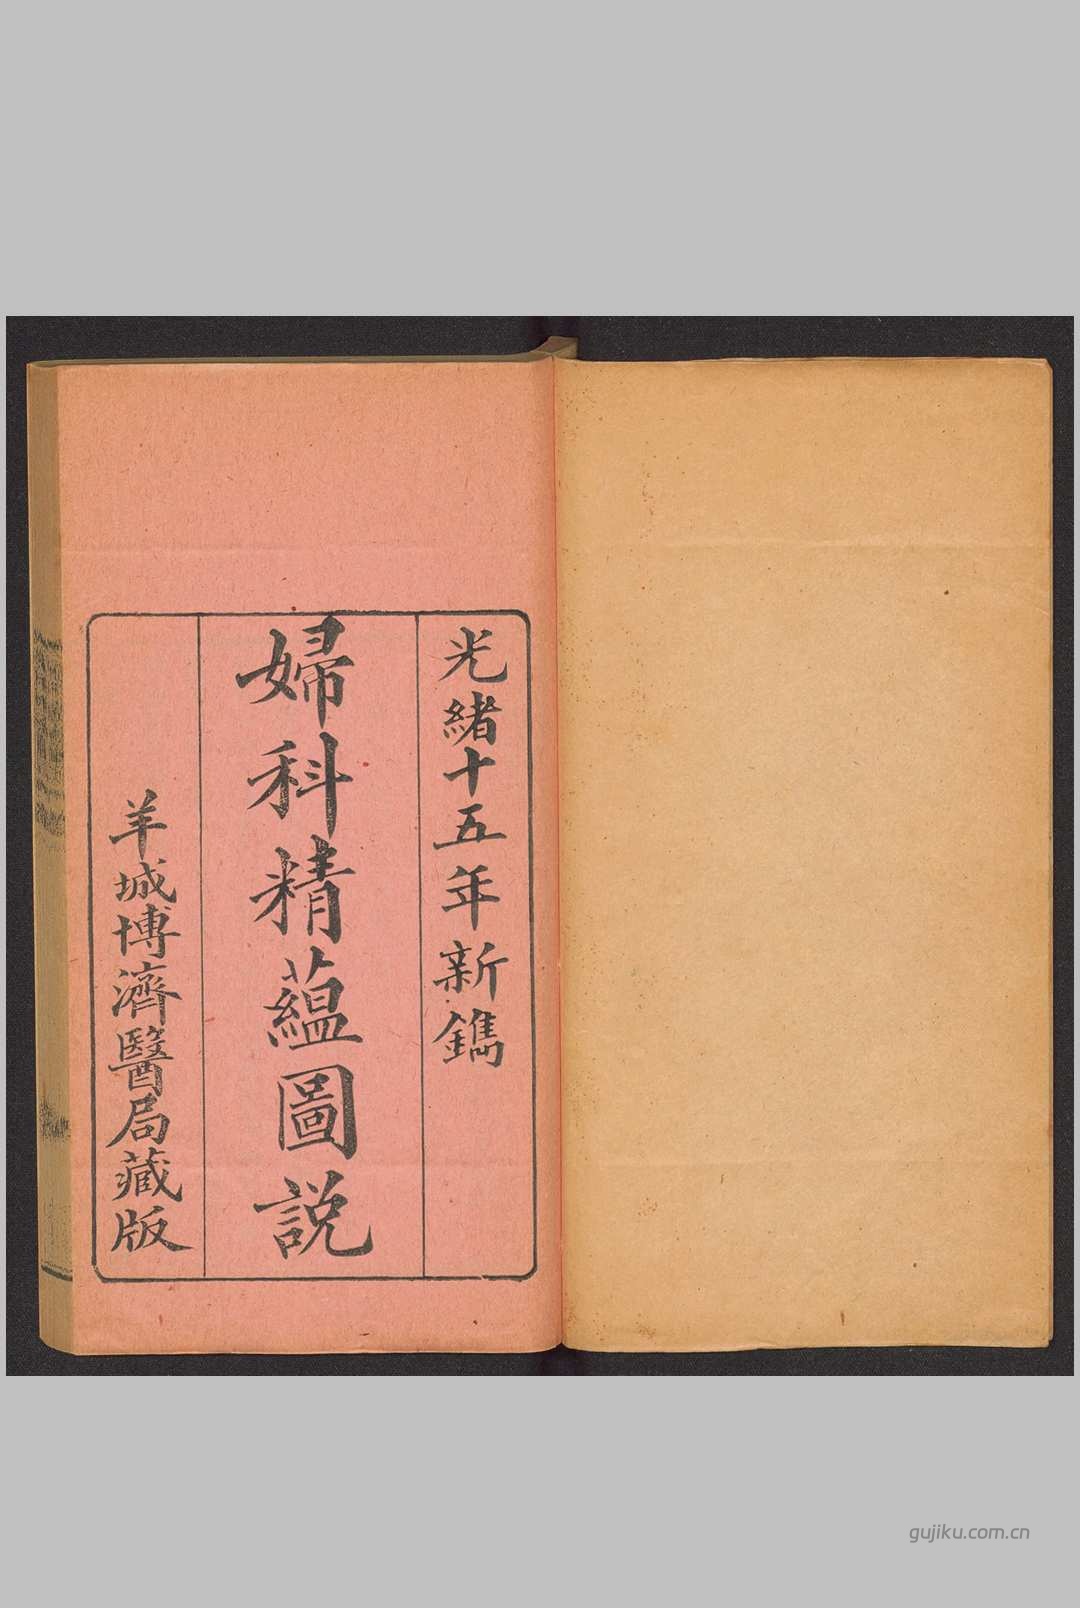 光緒十五年新鐫
婦科精蘊圖說
羊城博濟醫局藏版
gujiku.com.cn